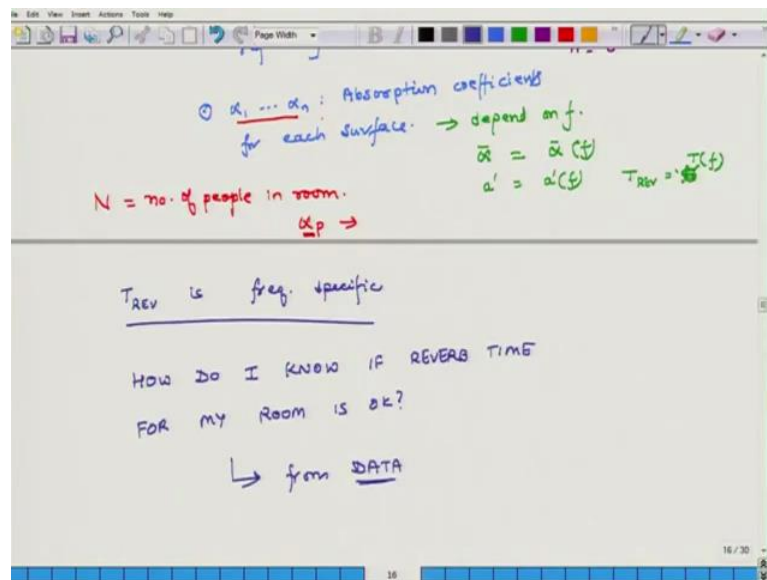 File Edit View Insert Actions Tools Help
Page Width
⊙ α₁ ... αₙ : Absorption coefficients
for each surface. → depend on f.
ᾱ = ᾱ (f)
a' = a'(f) T_REV = T(f)
N = no. of people in room.
αp →
T_REV is freq. specific
HOW DO I KNOW IF REVERB TIME
FOR MY ROOM IS OK?
↳ from DATA
16 / 30
16